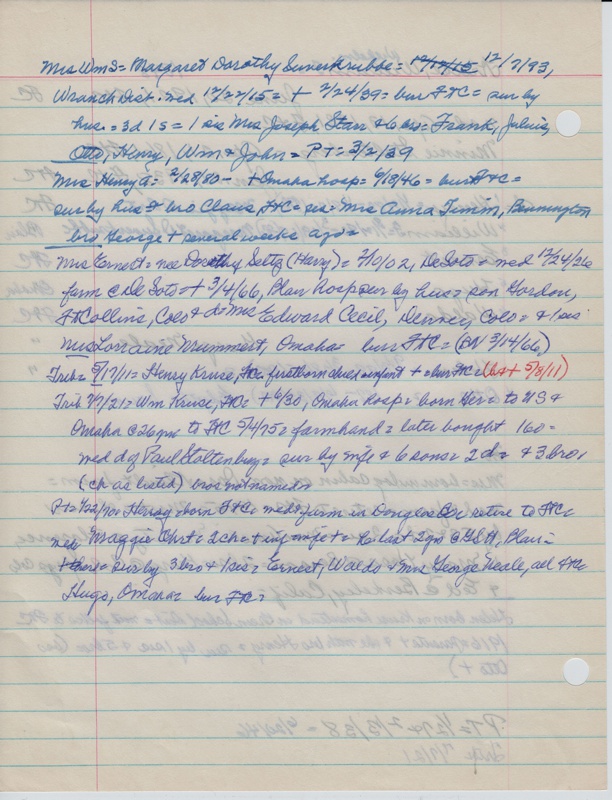 Mrs Wm S = Margaret Dorothy Suverkrubbe = 12/17/15 12/7/93,
Wranch Dist. = wed 12/27/15 = + 2/24/39 = bur FtC = sur by
hus = 3d 1s = 1 sis Mrs Joseph Starr & 6 bro = Frank, Julius,
Otto, Henry, Wm & John = PT = 3/2/39
Mrs Henry A = 2/28/80 - + Omaha hosp = 6/18/46 = bur FtC =
sur by hus & bro Claus, FtC = sis = Mrs Anna Timm, Bennington
bro George + several weeks ago =
Mrs Ernest = nee Dorothy Seltz (Harry) = 2/10/02, DeSoto = wed 12/24/26
farm @ DeSoto = + 3/4/66, Blair hosp sur by hus = son Gordon,
Ft Collins, Colo & d = Mrs Edward Cecil, Denver, Colo = & 1 sis
Mrs Lorraine Mummert, Omaha = bur FtC = (EN 3/14/66)
Trib = 5/17/11 = Henry Kruse, FtC firstborn child infant + = bur FtC = (b&+ 5/8/11)
Trib 7/7/21 = Wm Kruse, FtC = + 6/30, Omaha hosp = born Ger = to US &
Omaha @ 26 yrs to FtC 5/4/75 = farmhand = later bought 160 =
wed d of Paul Stoltenberg = sur by wife & 6 sons = 2 d = & 3 bro,
(ch as listed) bros not named =
PT = 1/22/70 = Henry born FtC = wed & farm in Douglas Co = retire to FtC =
wed Maggie Ohrt = 2 ch = + inf = wife + = last 2 yrs @ , Blair =
sur by 3 bro & 1 sis = Ernest, Waldo & Mrs George Neale, all FtC
Hugo, Omaha = bur FtC =